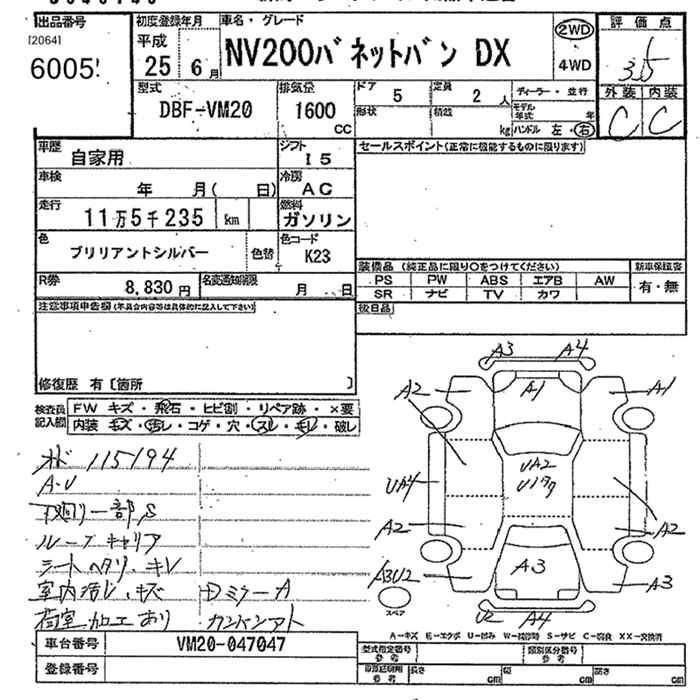 出品番号
[2064]
6005
初度登録年月
平成
25 6月
車名・グレード
NV200バネットバン DX
2WD
4WD
評価点
3.5
外装 内装
C C
型式
DBF-VM20
排気量
1600
CC
ドア
5
定員
2人
形状
積載
kg
ディーラー・並行
モデル年式 年
ハンドル 左・右
車歴
自家用
シフト
I5
車検
年 月( 日)
冷房
AC
走行
11万5千235 km
燃料
ガソリン
色
ブリリアントシルバー
色替
色コード
K23
R券
8,830円
名変通知期限
月 日
セールスポイント(正常に機能するものに限ります)
装備品 (純正品に限り〇をつけてください)
PS PW ABS エアB AW
SR ナビ TV カワ
新車保証書
有・無
後日品
注意事項申告欄(不具合内容等は具体的に記入して下さい)
修復歴 有 [箇所 ]
検査員
記入欄
FW キズ・飛石・ヒビ割・リペア跡・×要
内装 キズ・汚レ・コゲ・穴・スレ・キレ・破レ
メド 115194
A.U
下廻り一部S
ルーフキャリア
シートヘタリ、キレ
室内汚し、キズ
荷室加工あり
Dミラー A
カンバンアト
A3 A4
A2 A1 A1
UA2
UA4
A2 A2
A3
A3U2 A3
スペア
U2 A4
A-キズ E-エクボ U-凹み W-補修跡 S-サビ C-腐食 XX-交換済
車台番号
VM20-047047
登録番号
型式指定番号
参考
類別区分番号
参考
長さ cm
幅 cm
高さ cm